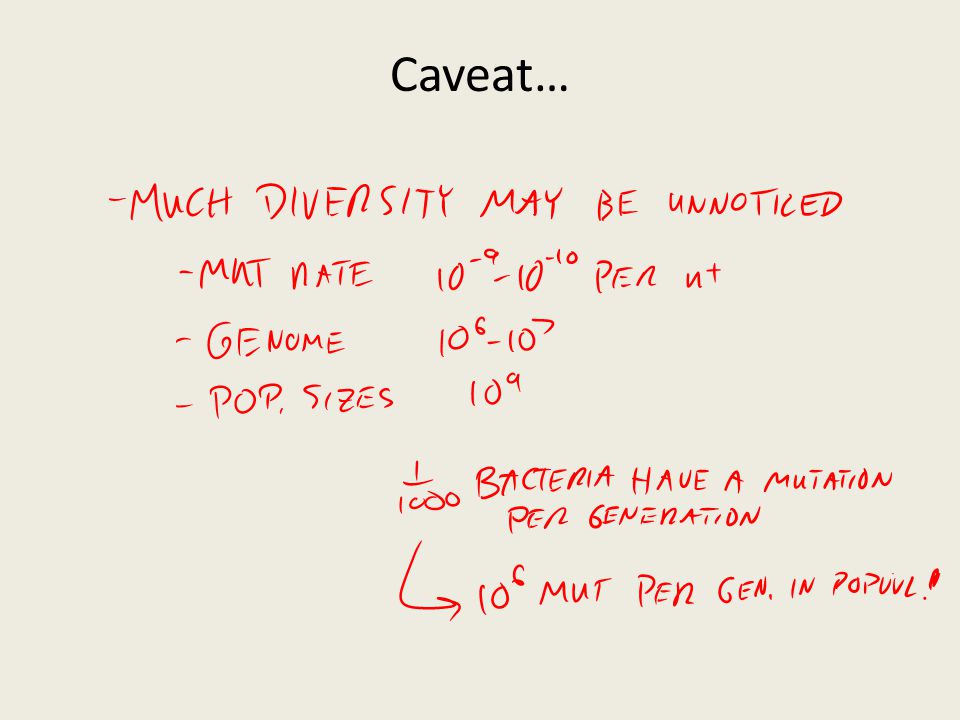 Caveat...
- MUCH DIVERSITY MAY BE UNNOTICED
- MUT RATE 10⁻⁹-10⁻¹⁰ PER nt
- GENOME 10⁶-10⁷
- POP. SIZES 10⁹
1/1000 BACTERIA HAVE A MUTATION
PER GENERATION
10⁶ MUT PER GEN. IN POPUL!